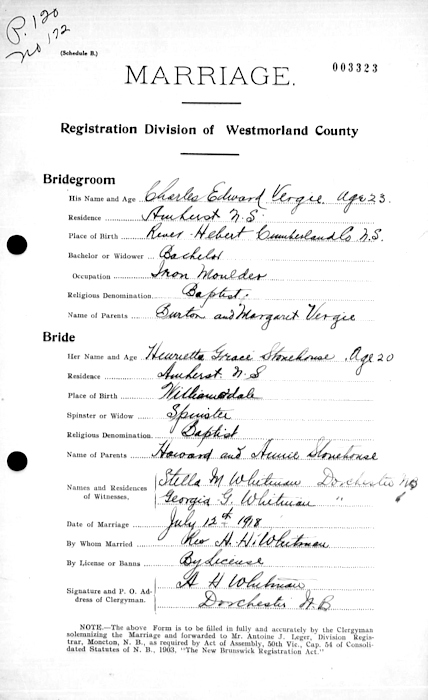 P. 120
No 172
(Schedule B.)
003323
MARRIAGE.
Registration Division of Westmorland County
Bridegroom
His Name and Age Charles Edward Vergie Age 23.
Residence Amherst N.S.
Place of Birth River Hebert Cumberland Co N.S.
Bachelor or Widower Bachelor
Occupation Iron Moulder
Religious Denomination Baptist.
Name of Parents Burton and Margaret Vergie
Bride
Her Name and Age Henrietta Grace Stonehouse, Age 20
Residence Amherst N S
Place of Birth Williamsdale
Spinster or Widow Spinster
Religious Denomination Baptist
Name of Parents Howard and Annie Stonehouse
Names and Residences of Witnesses. Stella M Whitman Dorchester NB
Georgia G. Whitman "
Date of Marriage July 12th 1918
By Whom Married Rev A. H. Whitman
By License or Banns By License
Signature and P. O. Address of Clergyman. A H Whitman
Dorchester N.B
NOTE.—The above Form is to be filled in fully and accurately by the Clergyman
solemnizing the Marriage and forwarded to Mr. Antoine J. Leger, Division Regis-
trar, Moncton, N. B., as required by Act of Assembly, 50th Vic., Cap. 54 of Consoli-
dated Statutes of N. B., 1903, "The New Brunswick Registration Act."